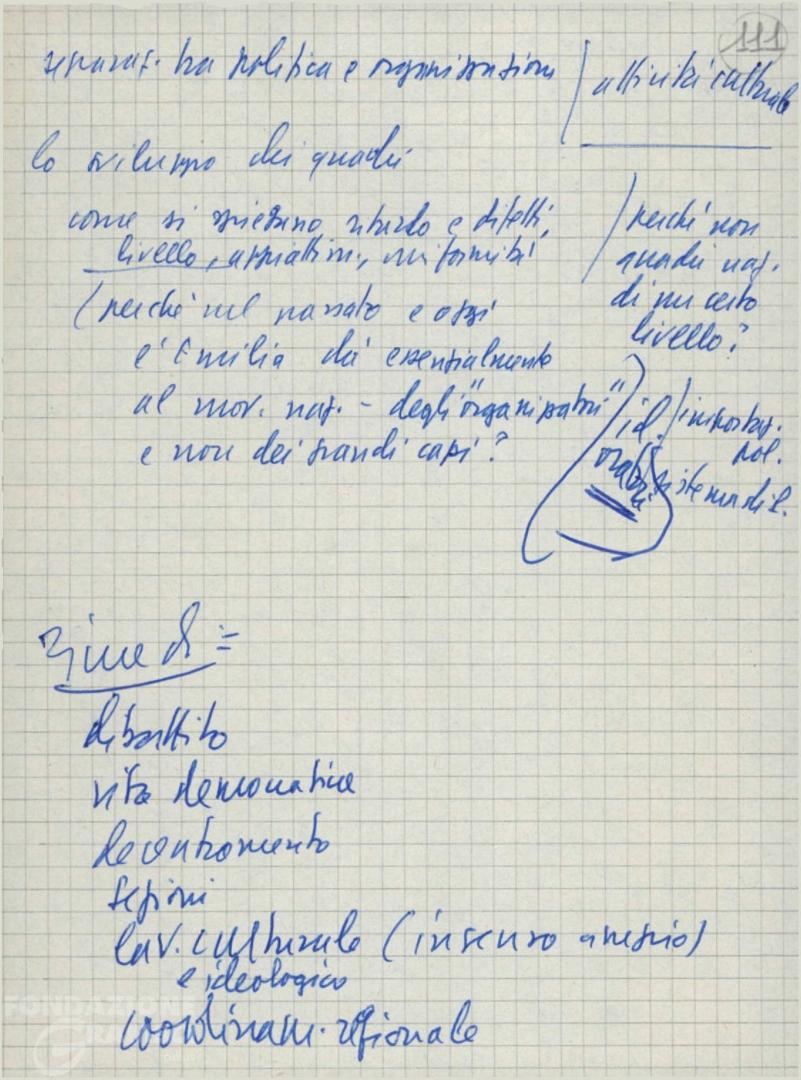 111
separaz. tra politica e organizzazione
attività culturale
lo sviluppo dei quadri
come si spiegano ritardo e difetti,
livello, appiattim., uniformità
(perché nel passato e oggi
l'Emilia dà essenzialmente
al mov. naz. - degli "organizzatori"
e non dei grandi capi?
perché non
quadri naz.
di un certo
livello?
id.
oratori
importaz.
pol.
sistema di
Rimedi =
dibattito
vita democratica
decentramento
sezioni
lav. culturale (in senso ampio)
e ideologico
coordinam. regionale
FONDAZIONE